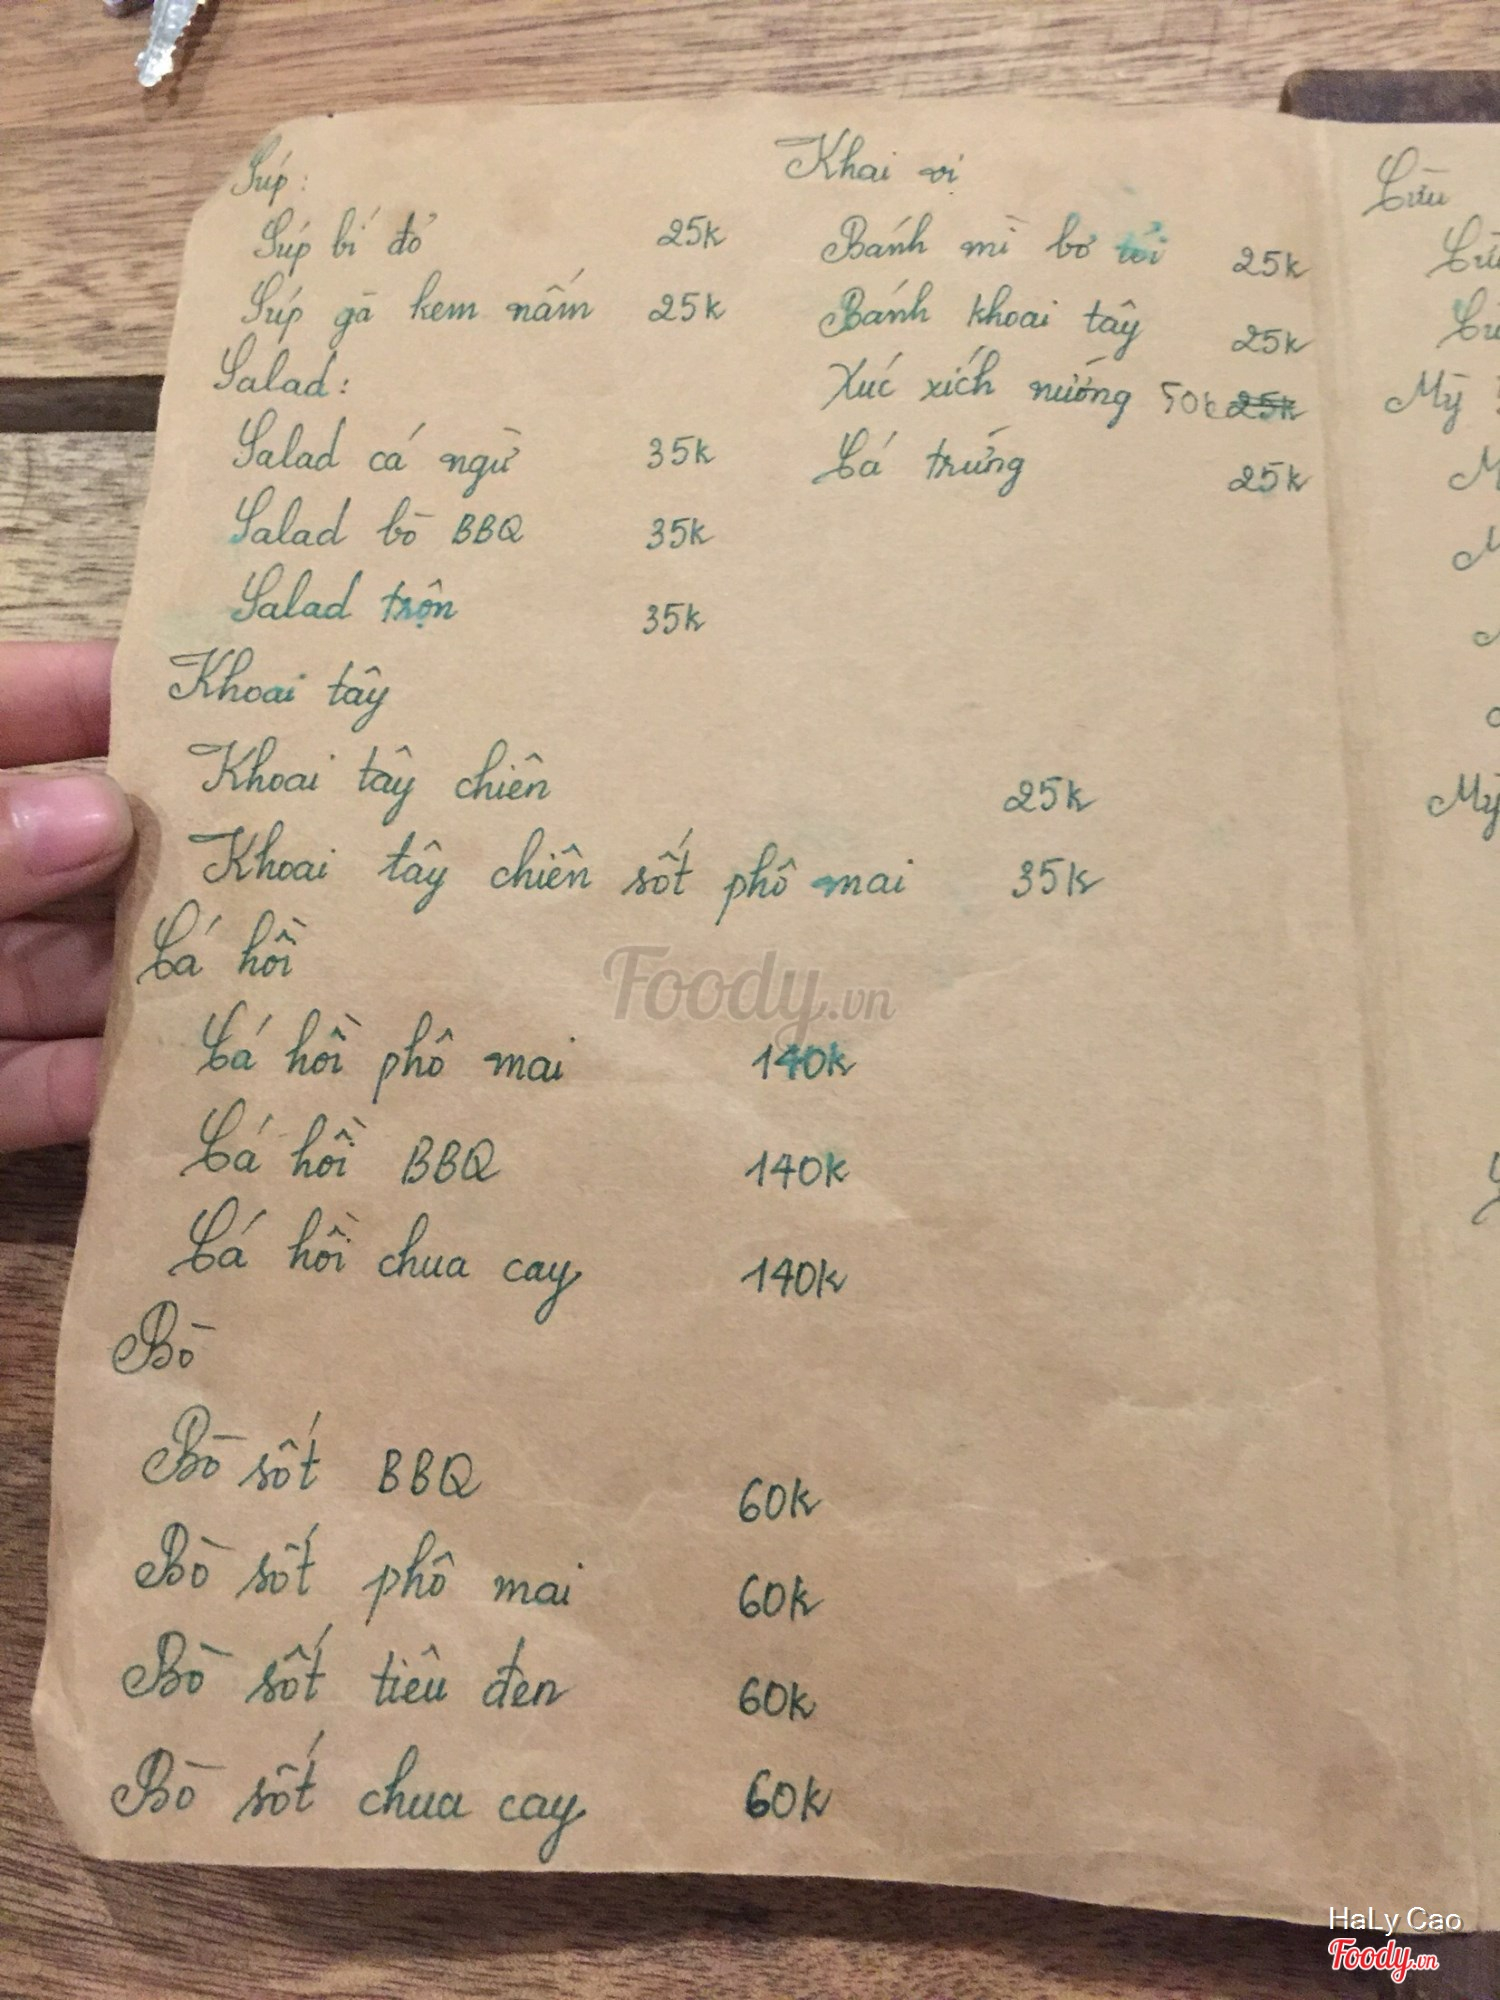 Súp:
Súp bí đỏ 25k
Súp gà kem nấm 25k
Salad:
Salad cá ngừ 35k
Salad bò BBQ 35k
Salad trộn 35k
Khai vị
Bánh mì bơ tỏi 25k
Bánh khoai tây 25k
Xúc xích nướng 50k 25k
Cá trứng 25k
Khoai tây
Khoai tây chiên 25k
Khoai tây chiên sốt phô mai 35k
Cá hồi
Cá hồi phô mai 140k
Cá hồi BBQ 140k
Cá hồi chua cay 140k
Bò
Bò sốt BBQ 60k
Bò sốt phô mai 60k
Bò sốt tiêu đen 60k
Bò sốt chua cay 60k
Cừu
Mỳ
Mỳ
Foody.vn
HaLy Cao
Foody.vn